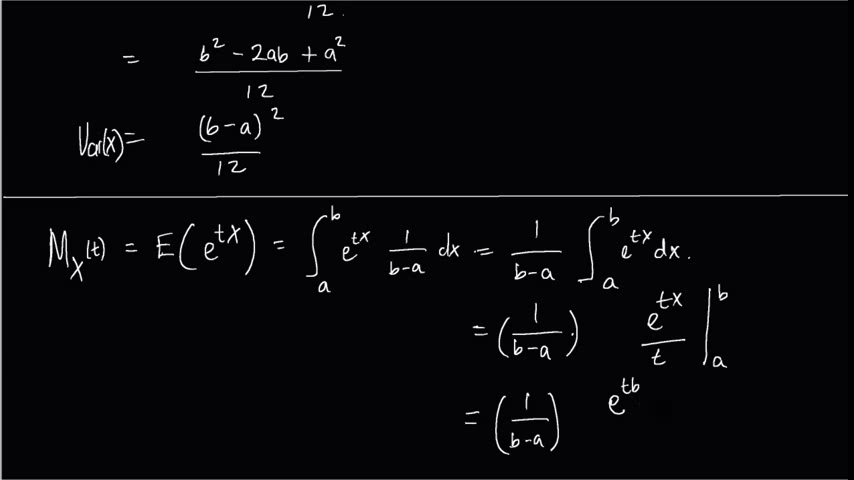 12.
= b² − 2ab + a² / 12
Var(X) = (b−a)² / 12
M_X(t) = E(e^{tX}) = ∫_a^b e^{tx} 1/(b−a) dx = 1/(b−a) ∫_a^b e^{tx} dx.
= (1/(b−a).) e^{tx}/t |_a^b
= (1/(b−a)) e^{tb}